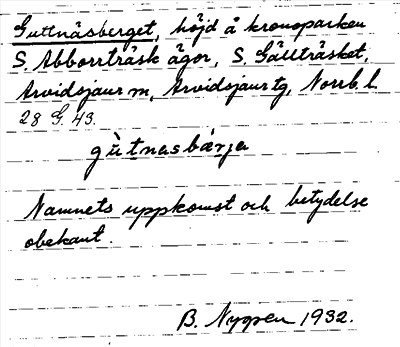 Guttnäsberget, höjd å kronoparken
S. Abborrträsk ägor, S. Gällträsket,
Arvidsjaur m, Arvidsjaur tg, Norrb. l.
28 G. 43.
gùtnasbárja
Namnets uppkomst och betydelse
obekant.
B. Nygren 1932.